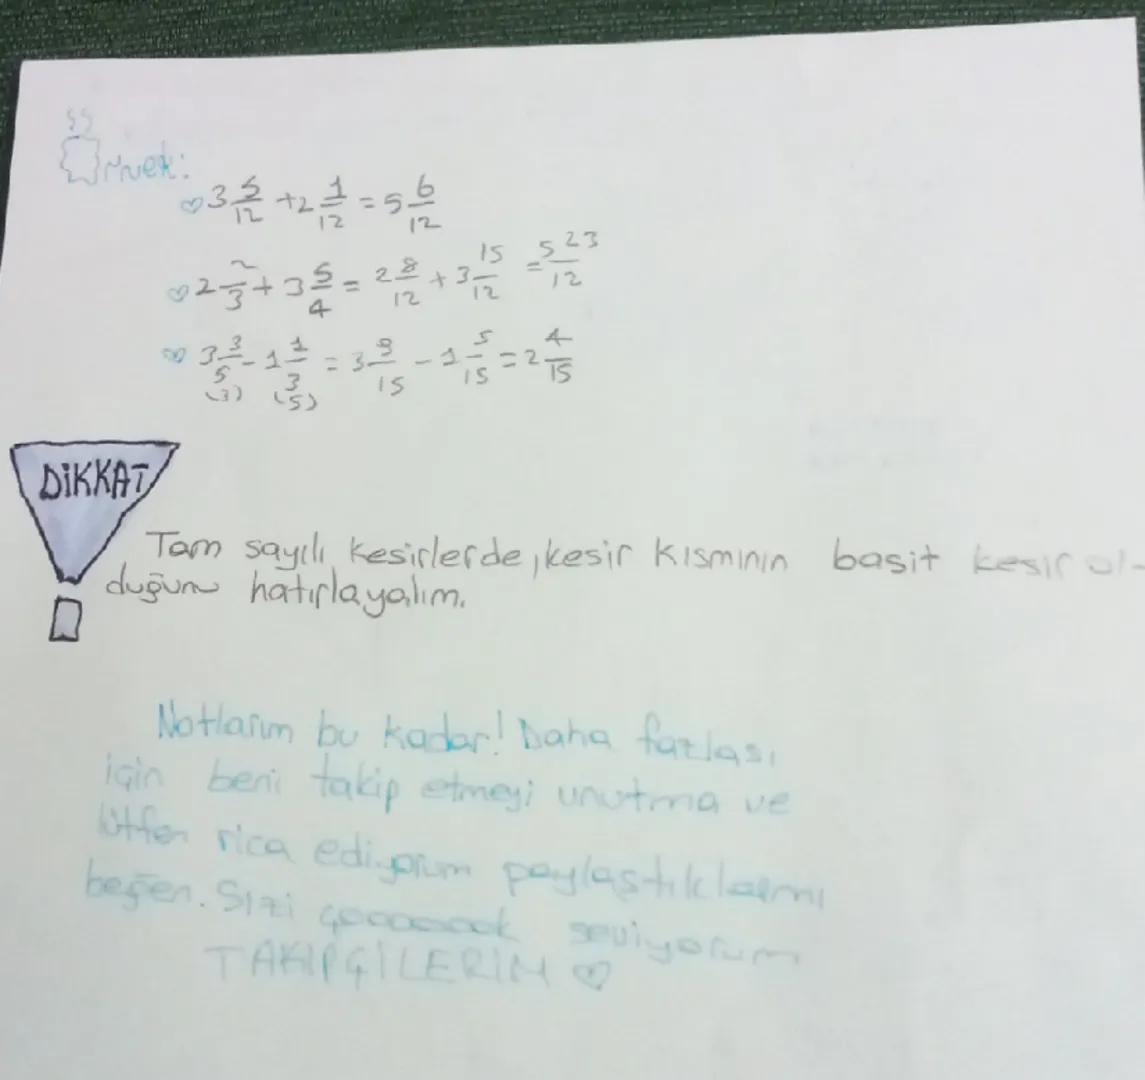 Örnek:
♡ 3 5/12 + 2 1/12 = 5 6/12
♡ 2 2/3 + 3 5/4 = 2 8/12 + 3 15/12 = 5 23/12
♡ 3 3/5 - 1 1/3 = 3 9/15 - 1 5/15 = 2 4/15
(3) (5)
DİKKAT
Tam sayılı kesirlerde, kesir kısmının basit kesir ol-
duğunu hatırlayalım.
Notlarım bu kadar! Daha fazlası
için beni takip etmeyi unutma ve
lütfen rica ediyorum paylaştıklarımı
beğen. Sizi çooooook seviyorum
TAKİPÇİLERİM ♡